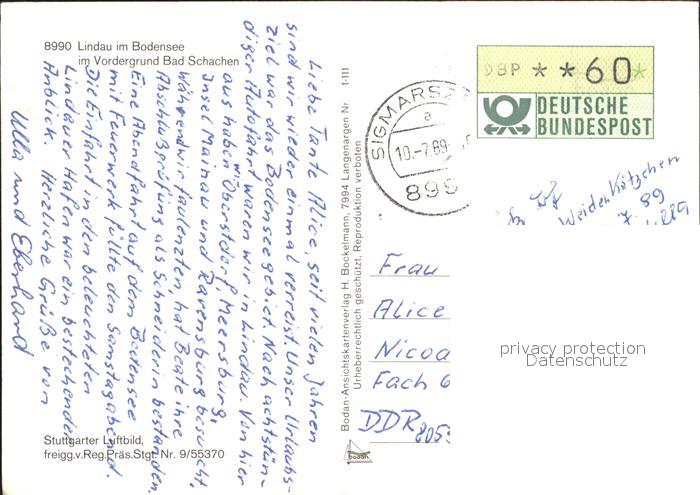 8990 Lindau im Bodensee
im Vordergrund Bad Schachen
Liebe Tante Alice, seit vielen Jahren
sind wir wieder einmal verreist. Unser Urlaubs-
ziel war das Bodenseegebiet. Nach achtstün-
diger Autofahrt waren wir in Lindau. Von hier
aus haben wir Oberstdorf, Meersburg,
Insel Mainau und Ravensburg besucht.
Während wir faulenzten, hat Beate ihre
Abschlußprüfung als Schneiderin bestanden.
Eine Abendfahrt auf dem Bodensee
mit Feuerwerk füllte den Samstagabend.
Die Einfahrt in den beleuchteten
Lindauer Hafen war ein bestechender
Anblick. Herzliche Grüße von
Ulla und Eberhard
Stuttgarter Luftbild,
freigg.v.Reg.Präs.Stgt. Nr. 9/55370
Bodan-Ansichtskartenverlag H. Bockelmann, 7994 Langenargen Nr. 1-111
Urheberrechtlich geschützt, Reproduktion verboten
bodan
SIGMARSZ
a
10.-7.89
899
DBP * **60*
DEUTSCHE
BUNDESPOST
Weidenkätzchen
89
Frau
Alice
Nicoa
Fach 6
DDR 805
privacy protection
Datenschutz